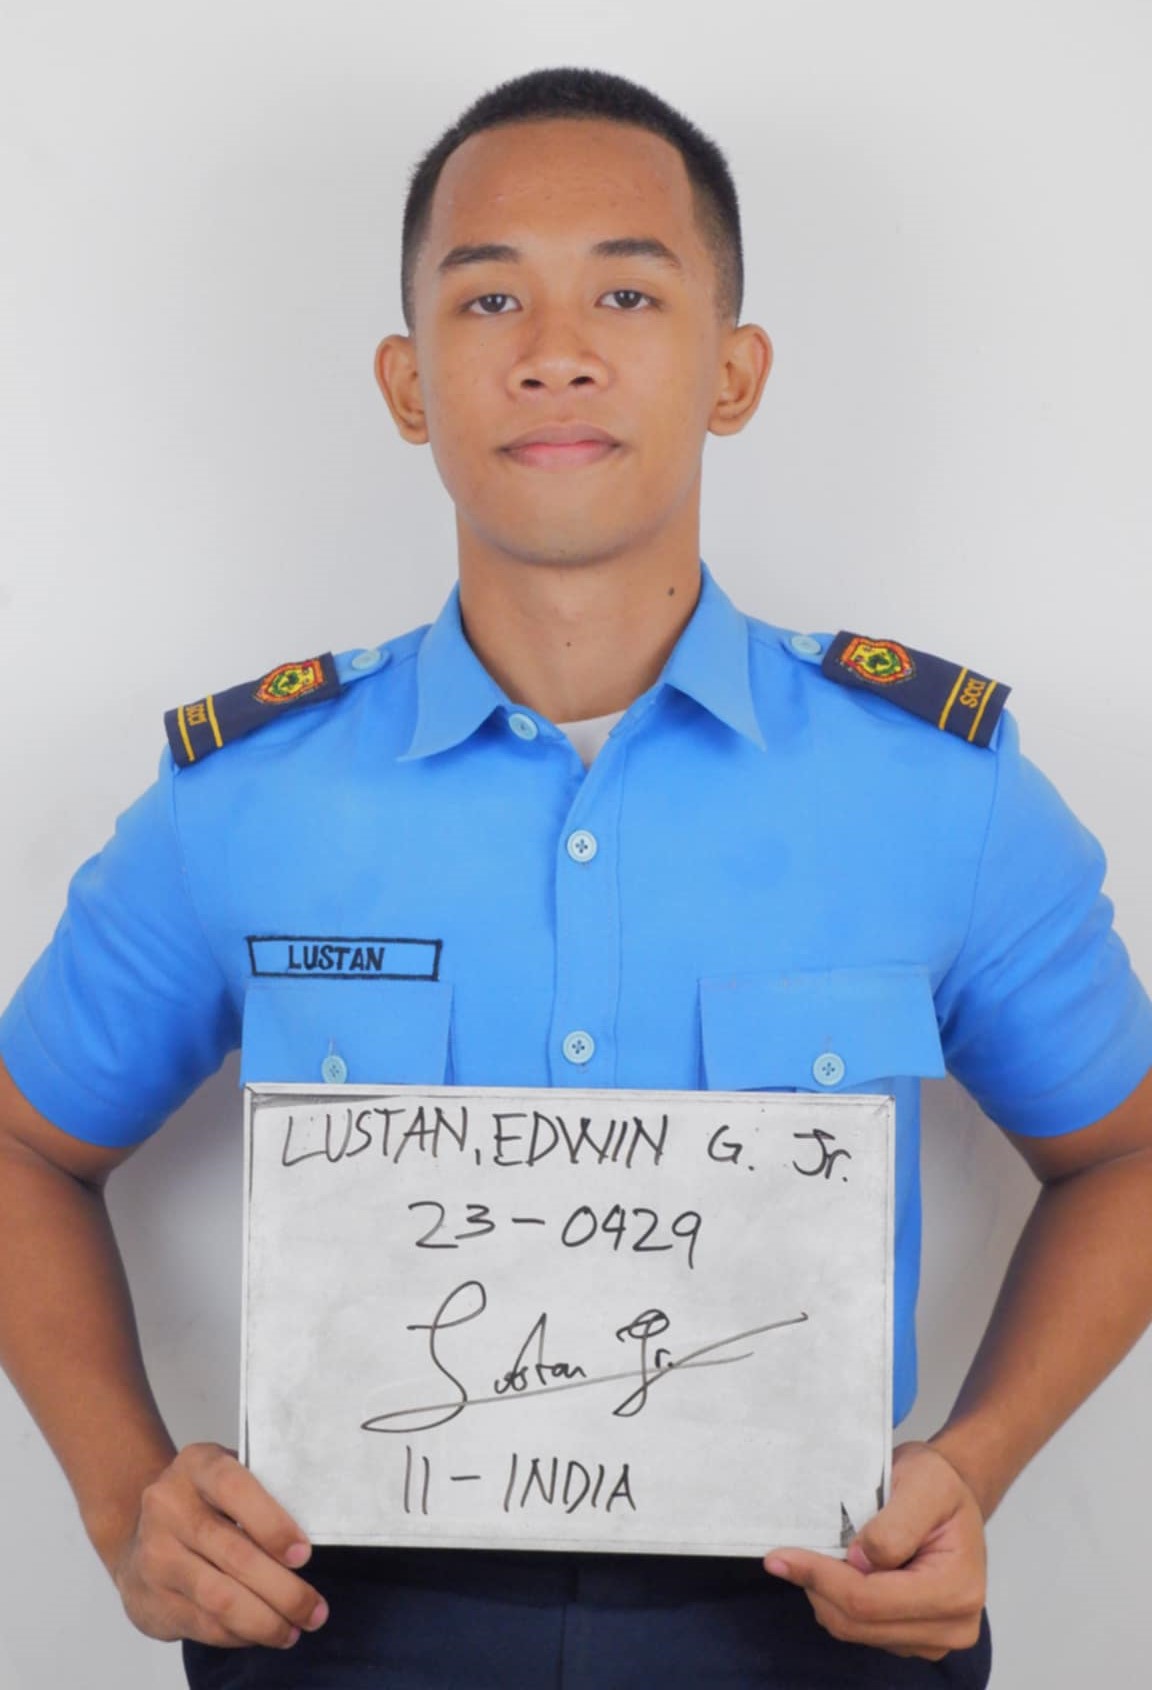 SCCI
SCCI
LUSTAN
LUSTAN, EDWIN G. Jr.
23-0429
Lustan Jr.
11-INDIA